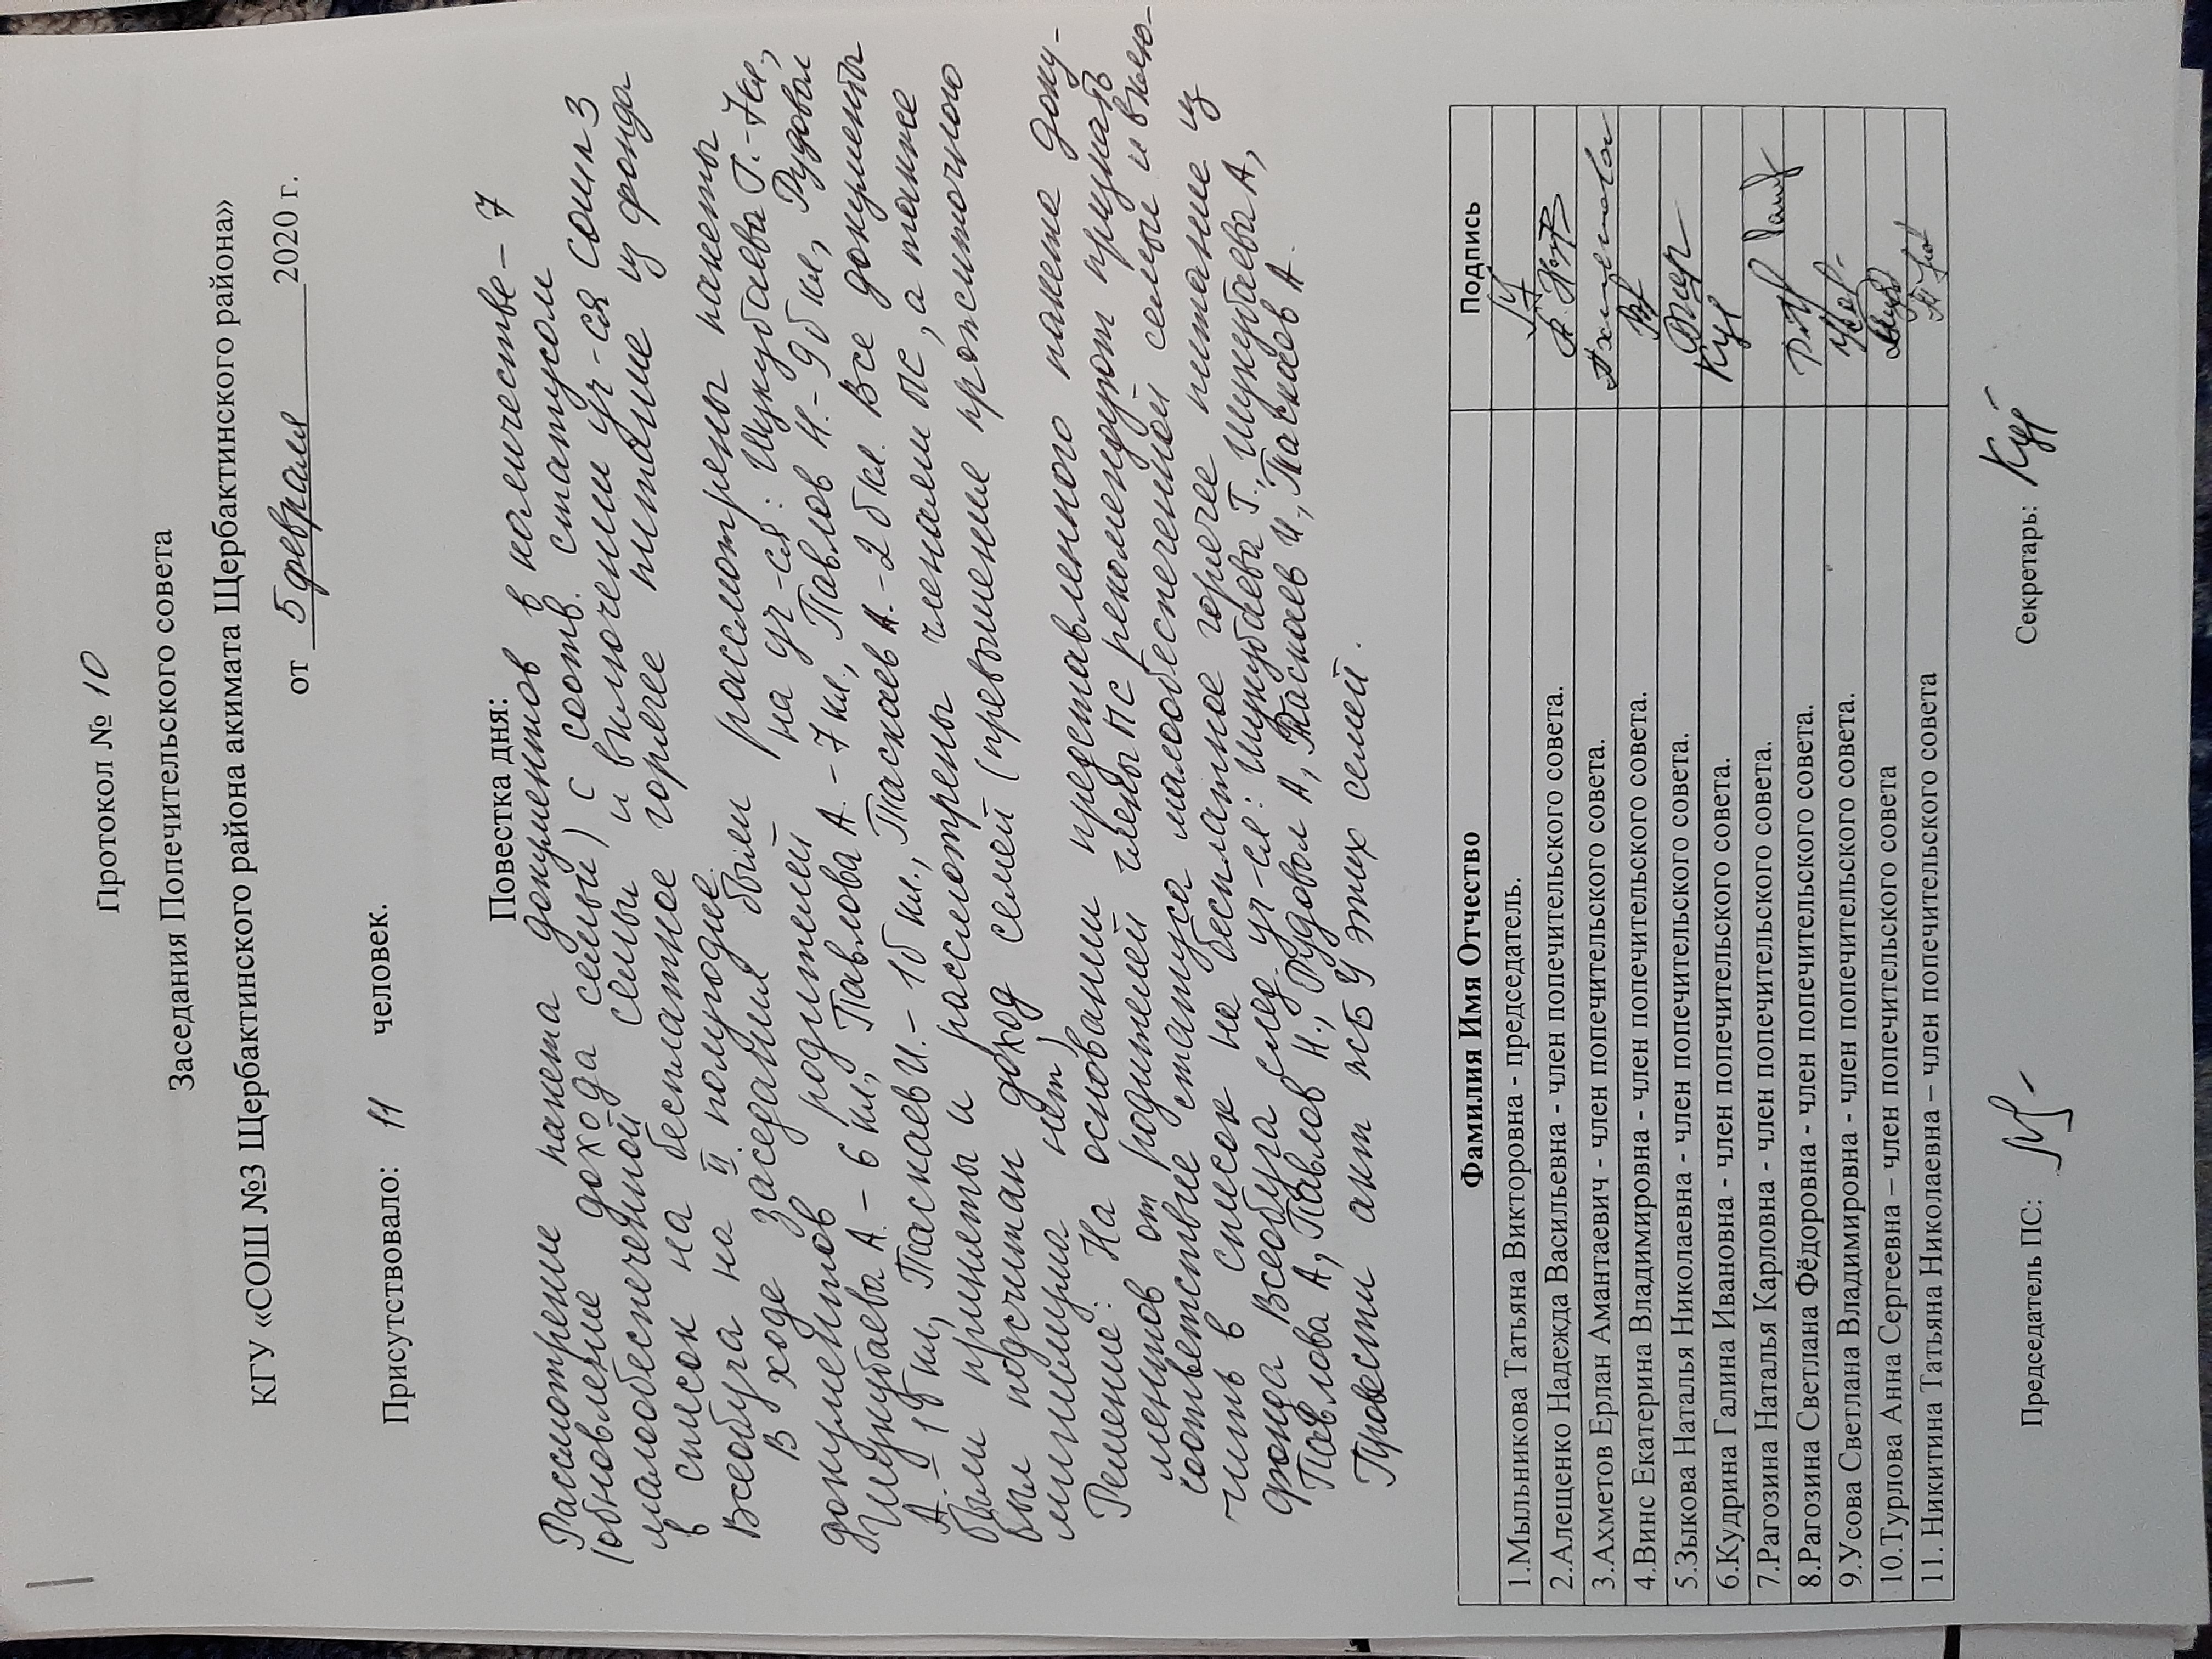 Протокол № 10
Заседания Попечительского совета
КГУ «СОШ №3 Щербактинского района акимата Щербактинского района»
от 5 февраля 2020 г.
Присутствовало: 11 человек.
Повестка дня:
Рассмотрение пакета документов в количестве - 7
(обновление дохода семьи) с соотв. статусом
малообеспеченной семьи и включении уч-ся СОШ 3
в список на бесплатное горячее питание из фонда
Всеобуча на II полугодие.
В ходе заседания были рассмотрены пакеты
документов родителей на уч-ся: Шукубаева Г.-7кл,
Шукубаева А.- 6 кл, Павлова А.-7 кл., Павлов Н.-9б кл, Рудовол
А.- 1б кл, Таскаев И.- 1б кл., Таскаев А.-2 б кл. Все документы
были приняты и рассмотрены членами ПС, а также
был подсчитан доход семей (превышение прожиточного
минимума нет)
Решение: На основании представленного пакета доку-
ментов от родителей члены ПС рекомендуют признать
соответствие статуса малообеспеченной семьи и вклю-
чить в список на бесплатное горячее питание из
фонда Всеобуча след. уч-ся: Шукубаева Г., Шукубаева А,
Павлова А, Павлов Н., Рудовол А, Таскаев И., Таскаев А.
Провести акт ЖБУ этих семей.
Фамилия Имя Отчество Подпись
1.Мыльникова Татьяна Викторовна - председатель.
2.Алещенко Надежда Васильевна - член попечительского совета.
3.Ахметов Ерлан Амантаевич - член попечительского совета.
4.Винс Екатерина Владимировна - член попечительского совета.
5.Зыкова Наталья Николаевна - член попечительского совета.
6.Кудрина Галина Ивановна - член попечительского совета.
7.Рагозина Наталья Карловна - член попечительского совета.
8.Рагозина Светлана Фёдоровна - член попечительского совета.
9.Усова Светлана Владимировна - член попечительского совета.
10.Турлова Анна Сергеевна – член попечительского совета
11. Никитина Татьяна Николаевна – член попечительского совета
Председатель ПС: Секретарь: